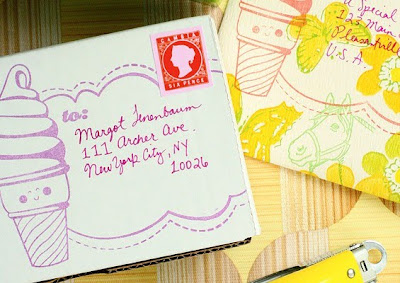 GAMBIA
SIX PENCE
to:
Margot Tenenbaum
111 Archer Ave.
New York City, NY
10026
a Special
123 Main
Pleasantville
U.S.A.